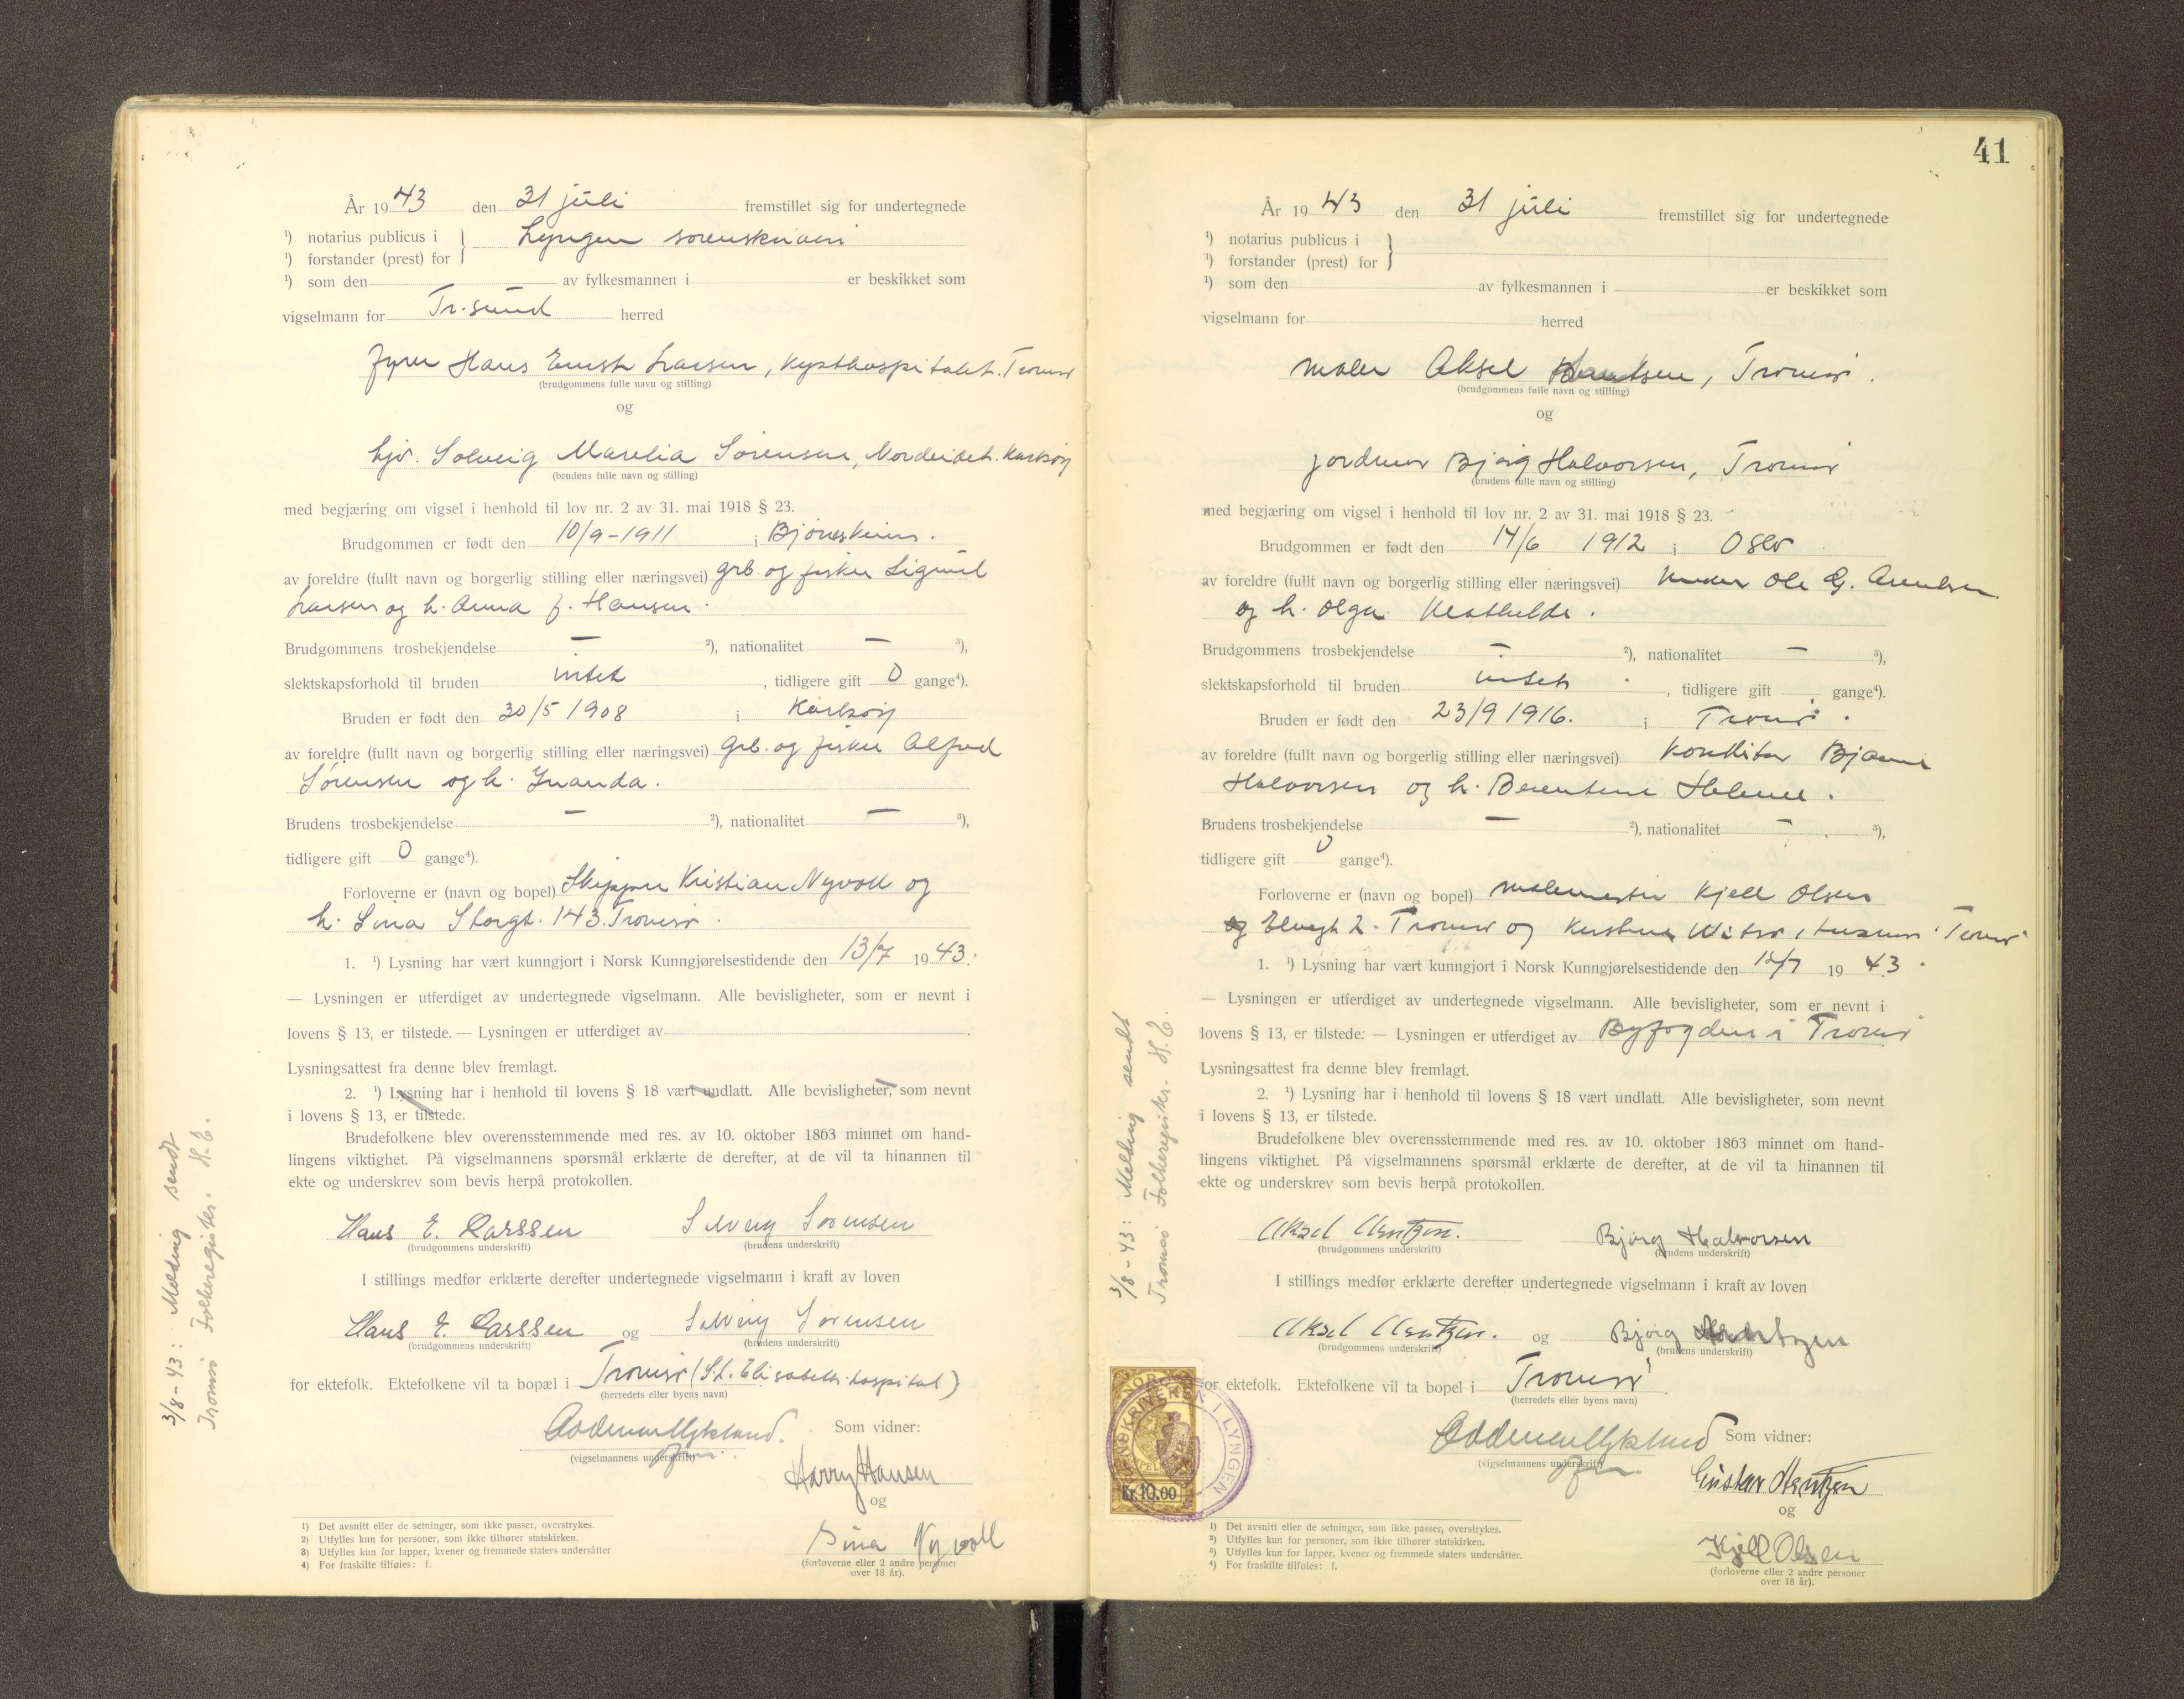 År 1943 den 31 juli fremstillet sig for undertegnede
¹) notarius publicus i } Lyngen sorenskriveri
¹) forstander (prest) for
¹) som den av fylkesmannen i er beskikket som
vigselmann for Tr.sund herred
Hans Larsen, Kysthospitalet. Tromsø
(brudgommens fulle navn og stilling)
og
Solveig Marelia Sørensen, Nordeidet. Karlsøy
(brudens fulle navn og stilling)
med begjæring om vigsel i henhold til lov nr. 2 av 31. mai 1918 § 23.
Brudgommen er født den 10/9-1911 i
av foreldre (fullt navn og borgerlig stilling eller næringsvei) grb. og fisker
Larsen og h. Anna f. Hansen.
Brudgommens trosbekjendelse — ²), nationalitet — ³),
slektskapsforhold til bruden intet, tidligere gift 0 gange⁴).
Bruden er født den 30/5 1908 i Karlsøy
av foreldre (fullt navn og borgerlig stilling eller næringsvei) Grb. og fisker Alfred
Sørensen og h.
Brudens trosbekjendelse — ²), nationalitet — ³),
tidligere gift 0 gange⁴).
Forloverne er (navn og bopel) Skipper Kristian Nyvoll og
h. Sina Storgt. 143. Tromsø.
1. ¹) Lysning har vært kunngjort i Norsk Kunngjørelsestidende den 13/7 1943.
— Lysningen er utferdiget av undertegnede vigselmann. Alle bevisligheter, som er nevnt i
lovens § 13, er tilstede. — Lysningen er utferdiget av
Lysningsattest fra denne blev fremlagt.
2. ¹) Lysning har i henhold til lovens § 18 vært undlatt. Alle bevisligheter, som nevnt
i lovens § 13, er tilstede.
Brudefolkene blev overensstemmende med res. av 10. oktober 1863 minnet om hand-
lingens viktighet. På vigselmannens spørsmål erklærte de derefter, at de vil ta hinannen til
ekte og underskrev som bevis herpå protokollen.
Hans E. Larssen Solveig Sørensen
(brudgommens underskrift) (brudens underskrift)
I stillings medfør erklærte derefter undertegnede vigselmann i kraft av loven
Hans E. Larssen og Solveig Sørensen
(brudgommens underskrift) (brudens underskrift)
for ektefolk. Ektefolkene vil ta bopæl i Tromsø (St. Elisabeths hospital)
(herredets eller byens navn)
Som vidner:
(vigselmannens underskrift)
Harry Hansen
og
Sina Nyvoll
(forloverne eller 2 andre personer
over 18 år).
1) Det avsnitt eller de setninger, som ikke passer, overstrykes.
2) Utfylles kun for personer, som ikke tilhører statskirken.
3) Utfylles kun for lapper, kvener og fremmede staters undersåtter
4) For fraskilte tilføies: f.
3/8-43: Melding sendt
Tromsø Folkeregister. H.E.
41
År 1943 den 31 juli fremstillet sig for undertegnede
¹) notarius publicus i }
¹) forstander (prest) for
¹) som den av fylkesmannen i er beskikket som
vigselmann for herred
maler Aksel, Tromsø.
(brudgommens fulle navn og stilling)
og
jordmor Bjørg Halvorsen, Tromsø
(brudens fulle navn og stilling)
med begjæring om vigsel i henhold til lov nr. 2 av 31. mai 1918 § 23.
Brudgommen er født den 14/6 1912 i Oslo
av foreldre (fullt navn og borgerlig stilling eller næringsvei) Ole G.
og h. Olga
Brudgommens trosbekjendelse — ²), nationalitet — ³),
slektskapsforhold til bruden intet, tidligere gift gange⁴).
Bruden er født den 23/9 1916. i Tromsø.
av foreldre (fullt navn og borgerlig stilling eller næringsvei) konditor Bjarne
Halvorsen og h. Berentine Helene.
Brudens trosbekjendelse — ²), nationalitet — ³),
tidligere gift 0 gange⁴).
Forloverne er (navn og bopel) malermester Kjell Olsen
Elvegt 2. Tromsø og Tromsø
1. ¹) Lysning har vært kunngjort i Norsk Kunngjørelsestidende den 1943.
— Lysningen er utferdiget av undertegnede vigselmann. Alle bevisligheter, som er nevnt i
lovens § 13, er tilstede. — Lysningen er utferdiget av Byfogden i Tromsø
Lysningsattest fra denne blev fremlagt.
2. ¹) Lysning har i henhold til lovens § 18 vært undlatt. Alle bevisligheter, som nevnt
i lovens § 13, er tilstede.
Brudefolkene blev overensstemmende med res. av 10. oktober 1863 minnet om hand-
lingens viktighet. På vigselmannens spørsmål erklærte de derefter, at de vil ta hinannen til
ekte og underskrev som bevis herpå protokollen.
Aksel Arntzen. Bjørg Halvorsen
(brudgommens underskrift) (brudens underskrift)
I stillings medfør erklærte derefter undertegnede vigselmann i kraft av loven
Aksel Arntzen. og Bjørg Arntzen
(brudgommens underskrift) (brudens underskrift)
for ektefolk. Ektefolkene vil ta bopel i Tromsø
(herredets eller byens navn)
Som vidner:
(vigselmannens underskrift)
Gustav Arntzen
og
Kjell Olsen
(forloverne eller 2 andre personer
over 18 år).
¹) Det avsnitt eller de setninger, som ikke passer, overstrykes.
²) Utfylles kun for personer, som ikke tilhører statskirken.
³) Utfylles kun for lapper, kvener og fremmede staters undersåtter.
⁴) For fraskilte tilføies: f.
3/8-43: Melding sendt
Tromsø Folkeregister. H.E.
Kr. 10.00
SORENSKRIVEREN I LYNGEN